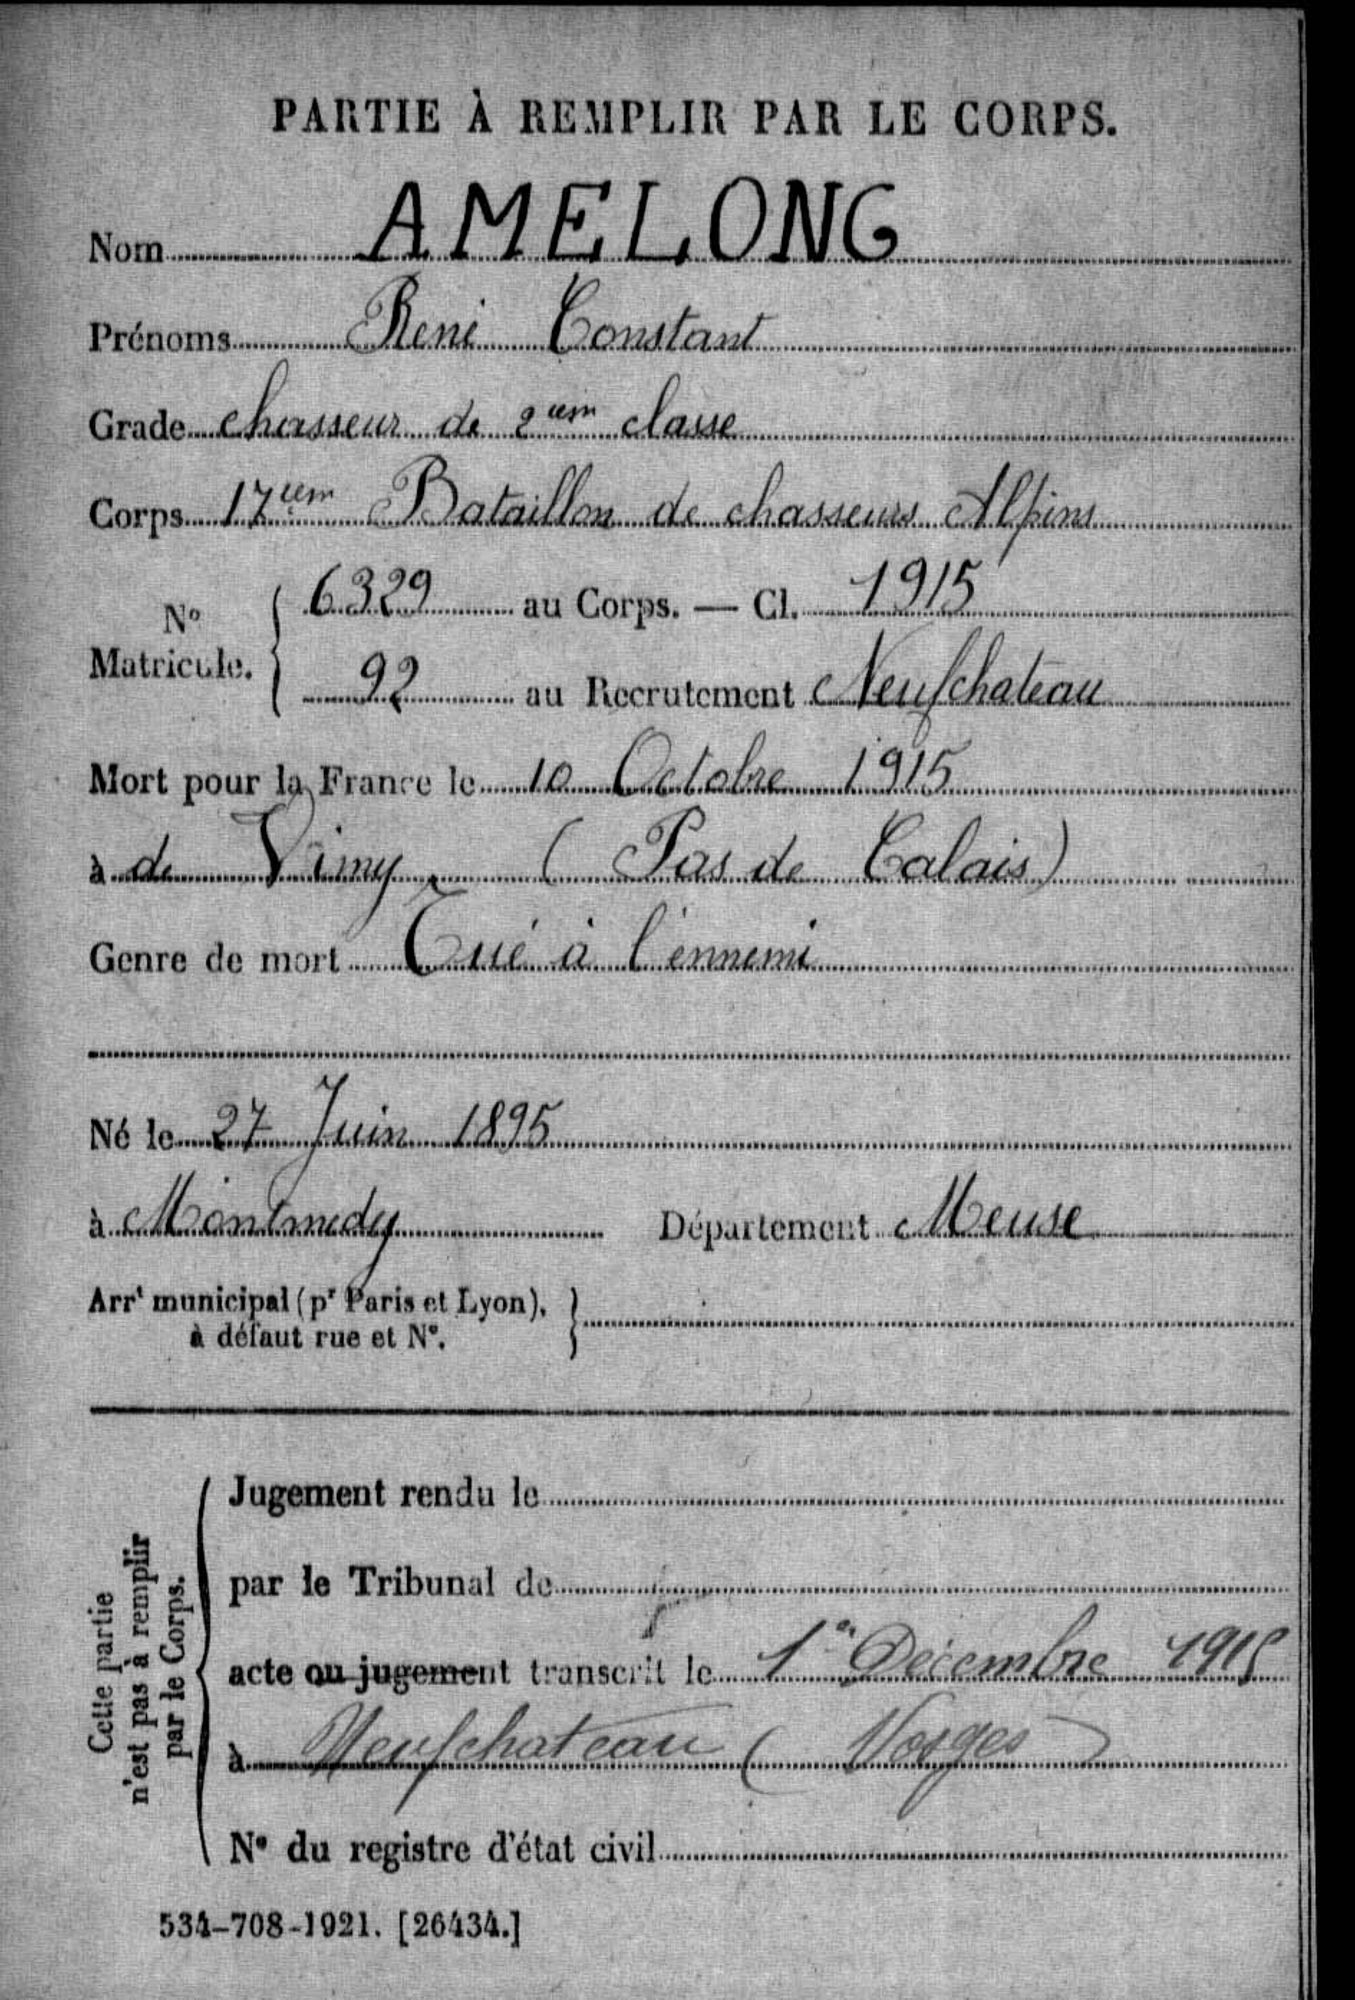 PARTIE À REMPLIR PAR LE CORPS.
Nom AMELONG
Prénoms René Constant
Grade chasseur de 2em classe
Corps 17em Bataillon de chasseurs Alpins
N° Matricule. 6329 au Corps. — Cl. 1915
92 au Recrutement Neufchateau
Mort pour la France le 10 Octobre 1915
à de Vimy (Pas de Calais)
Genre de mort Tué à l'ennemi
Né le 27 Juin 1895
à Montmedy Département Meuse
Arrt municipal (pr Paris et Lyon),
à défaut rue et N°.
Cette partie
n'est pas à remplir
par le Corps.
Jugement rendu le
par le Tribunal de
acte ou jugement transcrit le 1er Décembre 1915
à Neufchateau (Vosges)
N° du registre d'état civil
534-708-1921. [26434.]